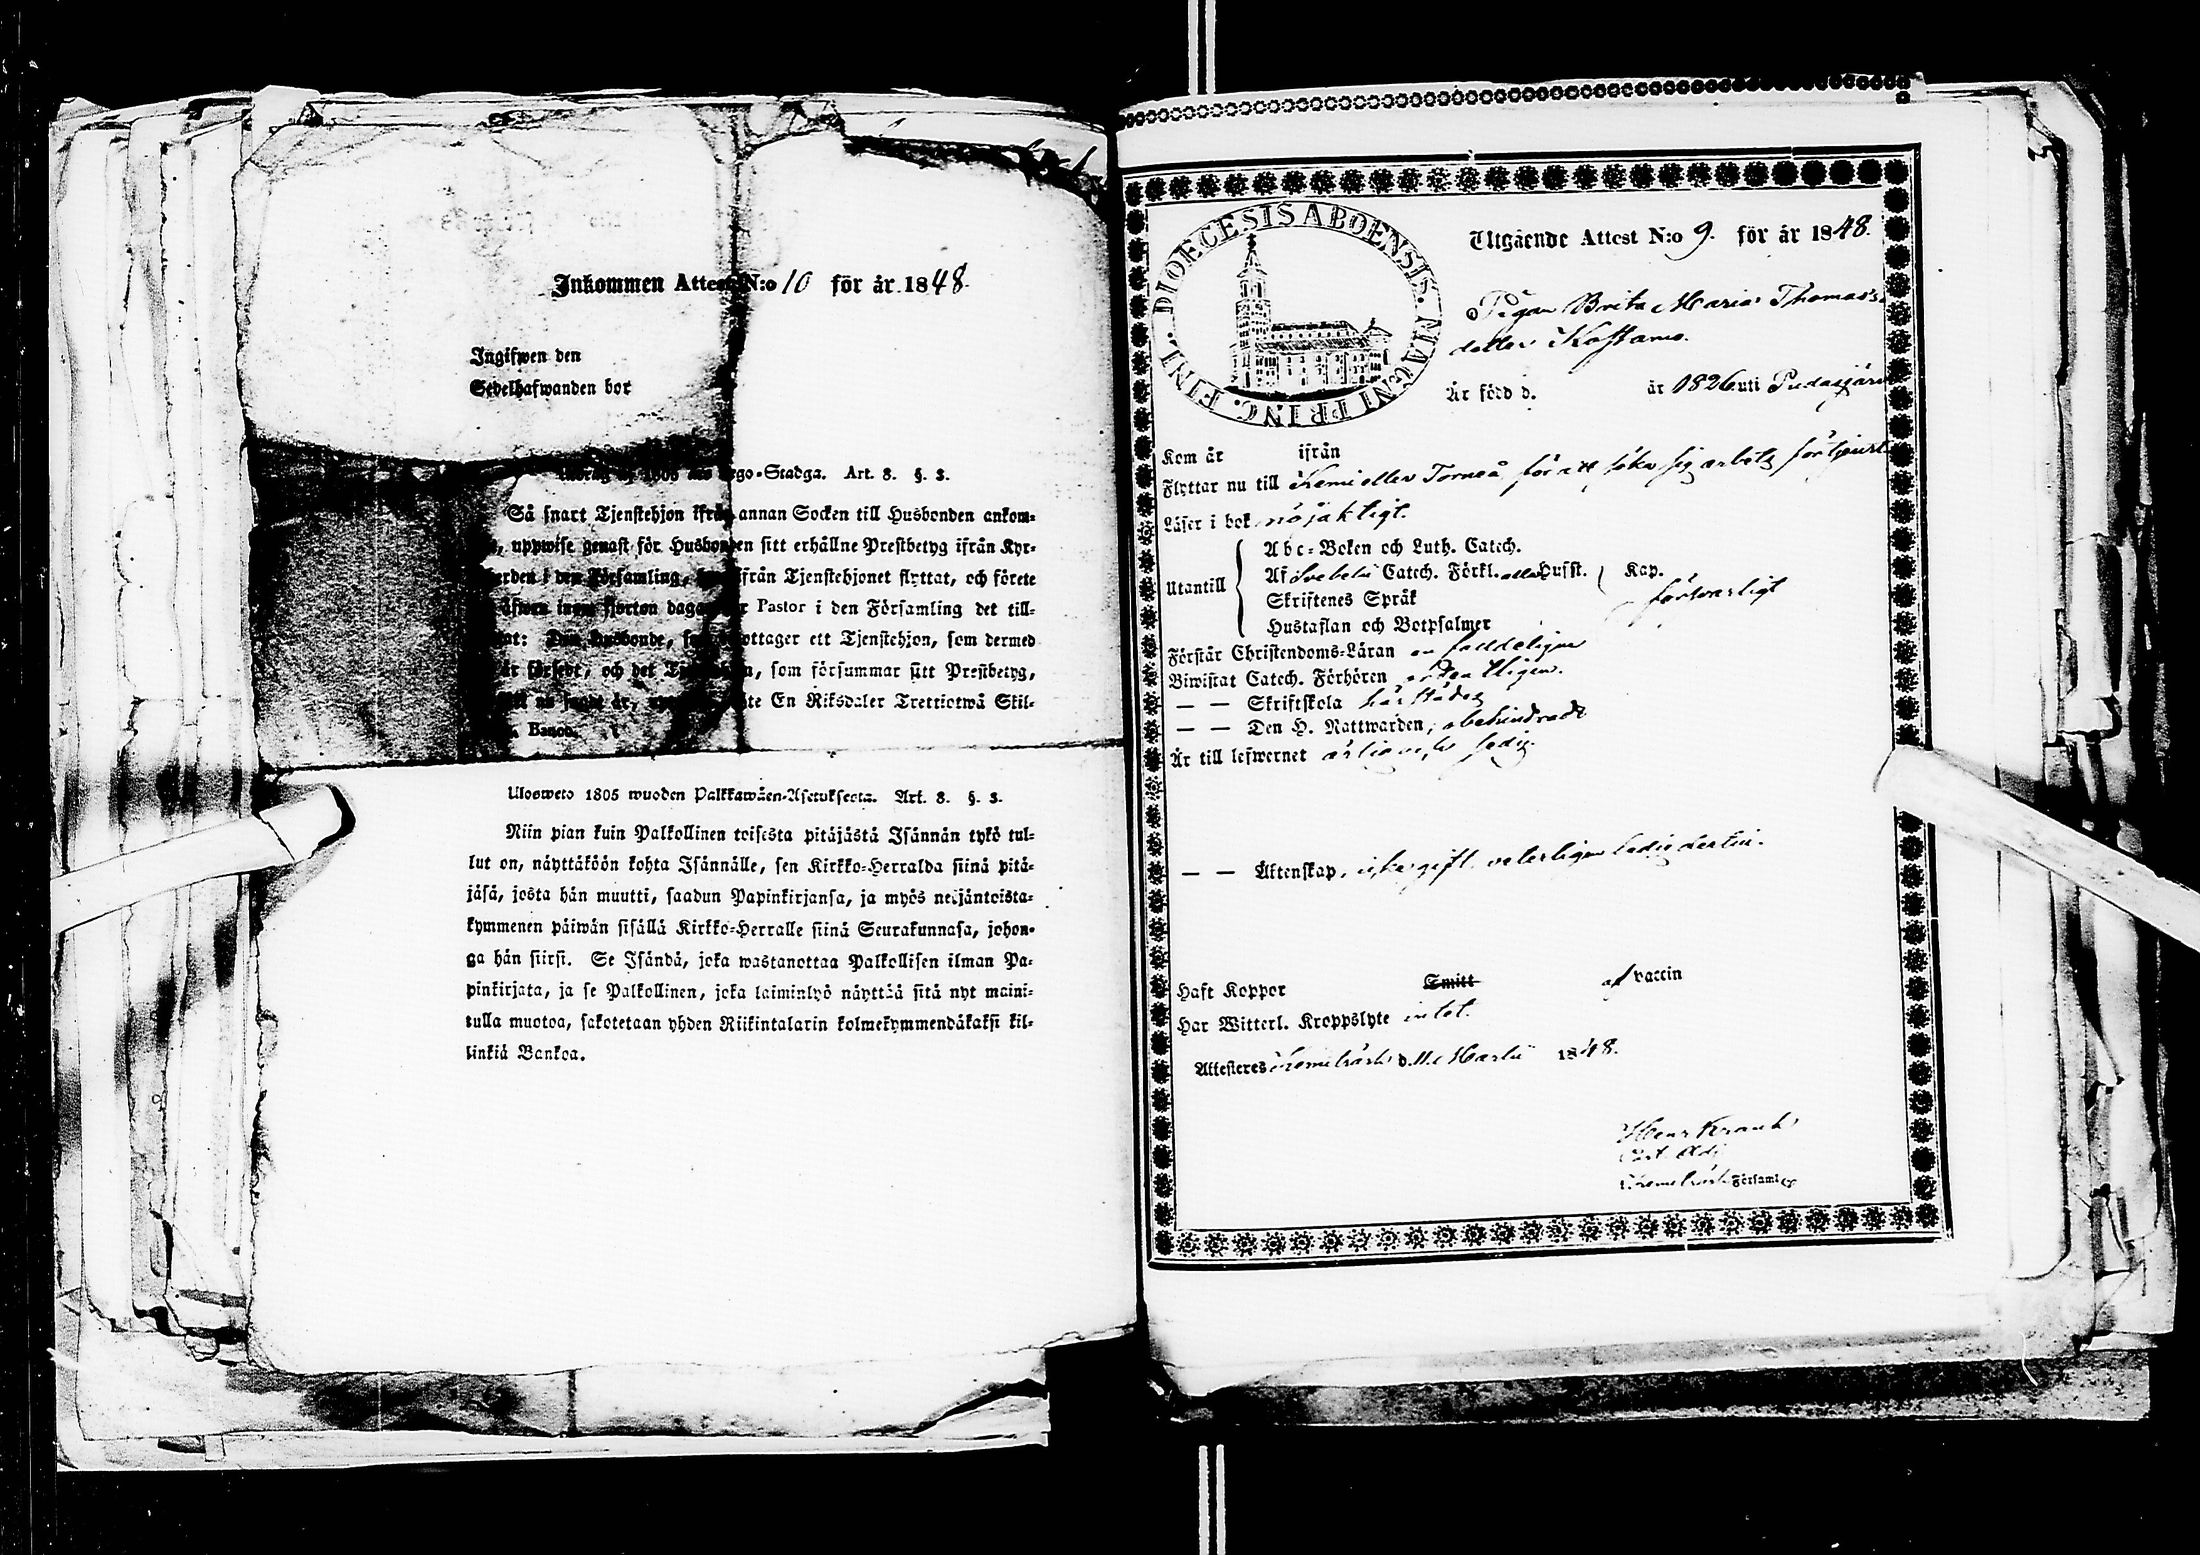 Inkommen Attest N:o 10 för år 1848.
Ingifwen den
Sedelhafwanden bor
Stadga. Art. 8. §. 3.
Så snart Tjenstehjon ifrån annan Socken till Husbonden ankom-
uppwise genast för Husbonden sitt erhållne Prestbetyg ifrån Kyr-
i den Församling, ifrån Tjenstehjonet flyttat, och förete
inom fjorton dagar Pastor i den Församling det till-
Den Husbonde, emottager ett Tjenstehjon, som dermed
är försedt, och det som försummar sitt Prestbetyg,
En Riksdaler Trettiotwå Skil-
Banco.
Ulosweto 1805 wuoden Palkkawäen-Asetuksesta. Art. 8. §. 3.
Niin pian kuin Palkollinen toisesta pitäjästä Isännän tykö tul-
lut on, näyttäköön kohta Isännälle, sen Kirkko-Herralda siinä pitä-
jäsä, josta hän muutti, saadun Papinkirjansa, ja myös neljäntoista-
kymmenen päiwän sisällä Kirkko-Herralle siinä Seurakunnasa, johon-
ga hän siirsi. Se Isändä, joka wastanottaa Palkollisen ilman Pa-
pinkirjata, ja se Palkollinen, joka laiminlyö näyttää sitä nyt maini-
tulla muotoa, sakotetaan yhden Riikintalarin kolmekymmendäkaksi kil-
linkiä Bankoa.
DIOECESIS ABOENSIS. MAGNI PRINC. FINL.
Utgående Attest N:o 9. för år 1848.
Pigan Brita Maria Thomas
dotter Kostamo.
Är född d. år 1826 uti Pudasjärvi
Kom år ifrån
Flyttar nu till Kemi eller Torneå för att söka sig årbete
Läser i bok nöjaktigt.
Utantill
Abc-Boken och Luth. Catech.
Af Svebelii Catech. Förkl. Hufst. Kap.
Skriftenes Språk försvarligt
Hustaflan och Botpsalmer
Förstår Christendoms-Läran
Biwistat Catech. Förhören ordentligen.
— — Skriftskola härstädes
— — Den H. Nattwarden, obehindradt
Är till lefwernet ärlig
— — Äktenskap,
Haft Koppor Smitt af vaccin
Har Witterl. Kroppslyte intet.
Attesteres Kemiträsk d. 11 Martii 1848.
Henr Kranck
Past. Adj.
Kemiträsk Församl